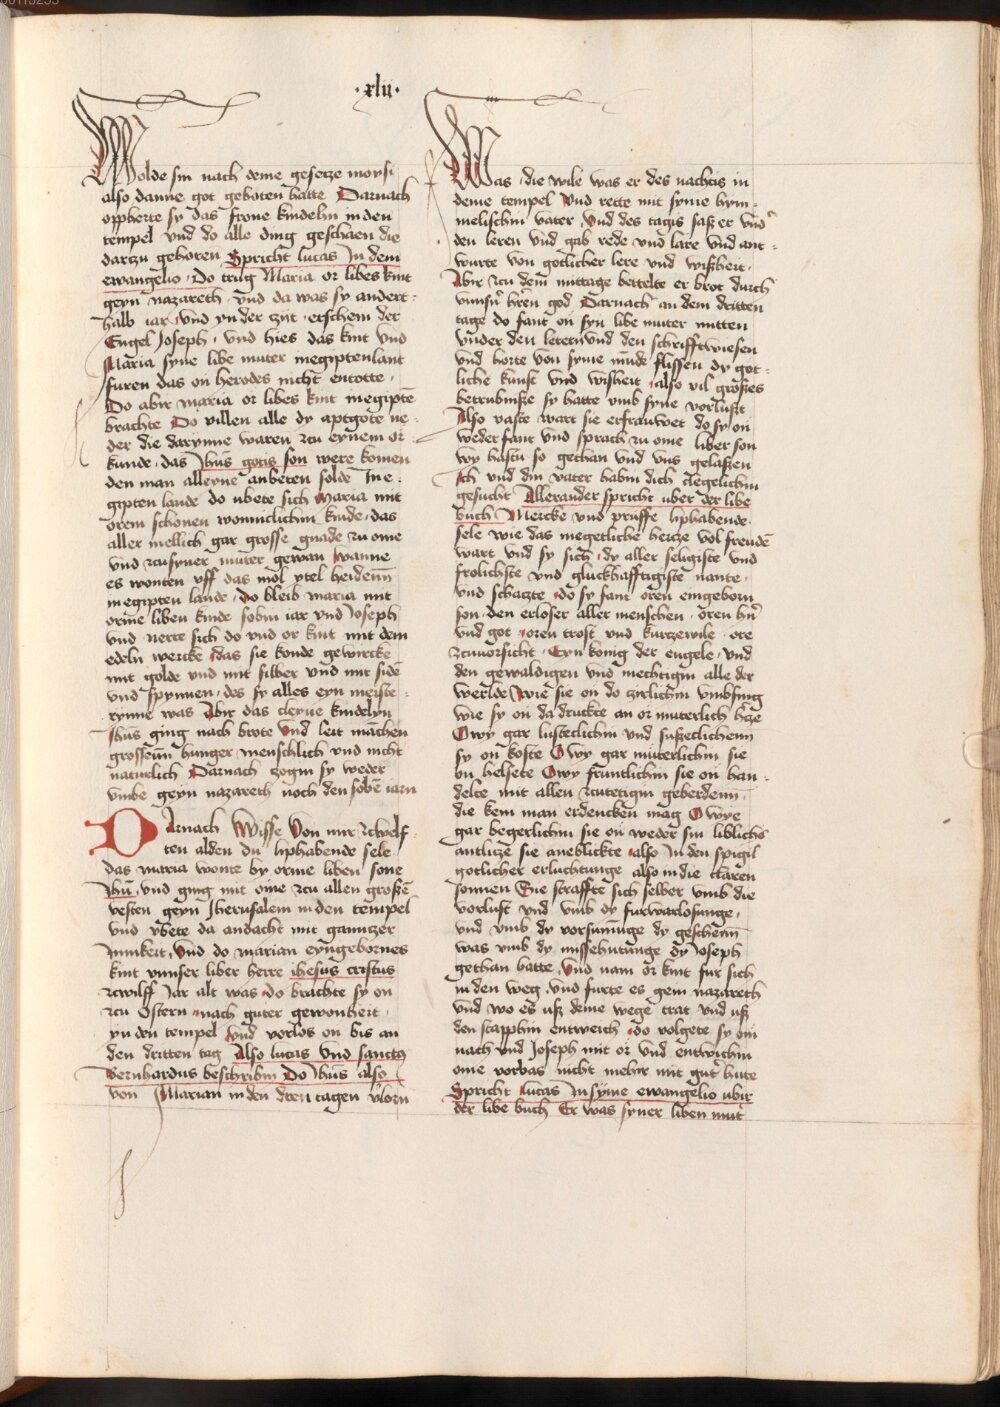 ·xlii·
Wolde sin nach deme gesetze moysi
also danne got geboten hatte Darnach
oppherte sy das frone kindelin in den
tempel vnd do alle ding geschaen die
dartzu gehoren Spricht lucas In dem
ewangelio · Do trug Maria or libes kint
geyn nazareth · vnd da was sy andert-
halb iar vnd yn der zyt · erschein der
Engel Joseph · vnd hies das kint vnd
Maria syne libe muter in egiptenlant
furen das on herodes nicht entotte ·
Do abir maria or libes kint in egipte
brachte Do villen alle dy aptgote ne-
der die darynne waren zcu eynem or-
kunde · das Ihūs gotis son were komen
den man alleyne anbeten solde In e-
gipten lande do vbete sich Maria mit
orem schonen wonniclichin kinde · das
aller mellich gar grosse gnade zu ome
vnd zcu syner muter gewan Wanne
es wonten vff das mol ytel heidenn
in egipten lande · Do bleib maria mit
orme liben kinde sobin iar vnd Joseph
vnd nerte sich do vnd or kint mit dem
edeln wercke das sie konde gewircke
mit golde vnd mit silber vnd mit side
vnd spynnen · des sy alles eyn meiste-
rynne was Abir das cleyne kindelyn
Ihūs ging nach brote vnd leit māchen
grossenn hunger menschlich vnd nicht
naturlich Darnach zogin sy weder
vmbe geyn nazareth noch den sobē iarn
DArnach Wisse Von mir zcwelf-
ten alden du liphabende sele
das maria wonte by orme liben sone
Ihū · vnd ging mit ome zcu allen großē
vesten geyn Iherusalem in den tempel
vnd vbete da andacht mit gantzer
Innikeit · Vnd do marian eyngebornes
kint vnnser liber herre ihesus cristus
zcwilff Jar alt was do brachte sy on
zcu Ostern nach guter gewonheit ·
yn den tempel vnd vorlos on bis an
den dritten tag Also lucas vnd sanctus
Bernhardus beschribin Do Ihūs also
von Marian in den dren tagen vlorn
Was · die wile was er des nachtis in
deme tempel Vnd rette mit syme hym-
melischin vater · Vnd des tagis saß er vnd'
den leren vnd gab rede vnd lare vnd ant-
wurte von gotlicher lere vnd wißheit ·
Abir zcu dem mittage bettelte er brot durch
vnnsn' hren god Darnach an dem dritten
tage do fant on syn libe muter mitten
vnder den lerern vnd den schrifftwiesen
vnd horte von syme mūde flissen dy got-
liche kunst vnd wisheit · also vil großes
betrubniße sy hatte vmb syne vorlust
Also vaste wart sie erfrauwet do sy on
weder fant vnd sprach zu ome liber son
wy hastu so gethan vnd vns gelaßen
Ich vnd din vater habin dich clegelichin
gesucht Allexander spricht uber der libe
buch Mercke vnd prüffe liphabende
sele wie das megetliche hertze vol freude
wart vnd sy sich · dy aller seligiste vnd
frolichste vnd gluckhafftigiste nante ·
vnd schatzte do sy fant oren eingeborn
son · den erlöser aller menschen · oren hn'
vnd got · oren trost vnd kurtzewile · ore
zcuuorsicht · Eyn konig der engele · vnd
den gewaldigen vnd mechtigin alle der
werlde Wie sie on do zirlichin vmbfing
wie sy on da druckte an or muterlich h'ze
Owy gar lusteclichin vnd sußeclichenn
sy on koste Owy gar muterlichin sie
on helsete Owy fruntlichin sie on han-
delte mit allen zcutetigin geberdenn ·
die kein man erdencken mag Owye
gar begerlichin sie on weder sin libliche
antlitze sie aneblickte also In den spigil
gotlicher erluchtunge also in die claren
sonnen Sie straffte sich selber vmb die
vorlust vnd vmb dy furwarlosunge ·
vnd vmb dy vorsumūge dy geschenn
was vmb dy missehutunge dy Joseph
gethan hatte · Vnd nam or kint fur sich
in den weg · vnd furte es gein nazareth
vnd wo es uß deme wege trat vnd uß
den stapphin entweich do volgete sy om
nach vnd Joseph mit or vnd entwichin
ome vorbas nicht mehir mit gut' hute
Spricht lucas In syme ewangelio ubir
der libe buch Er was syner liben mut'